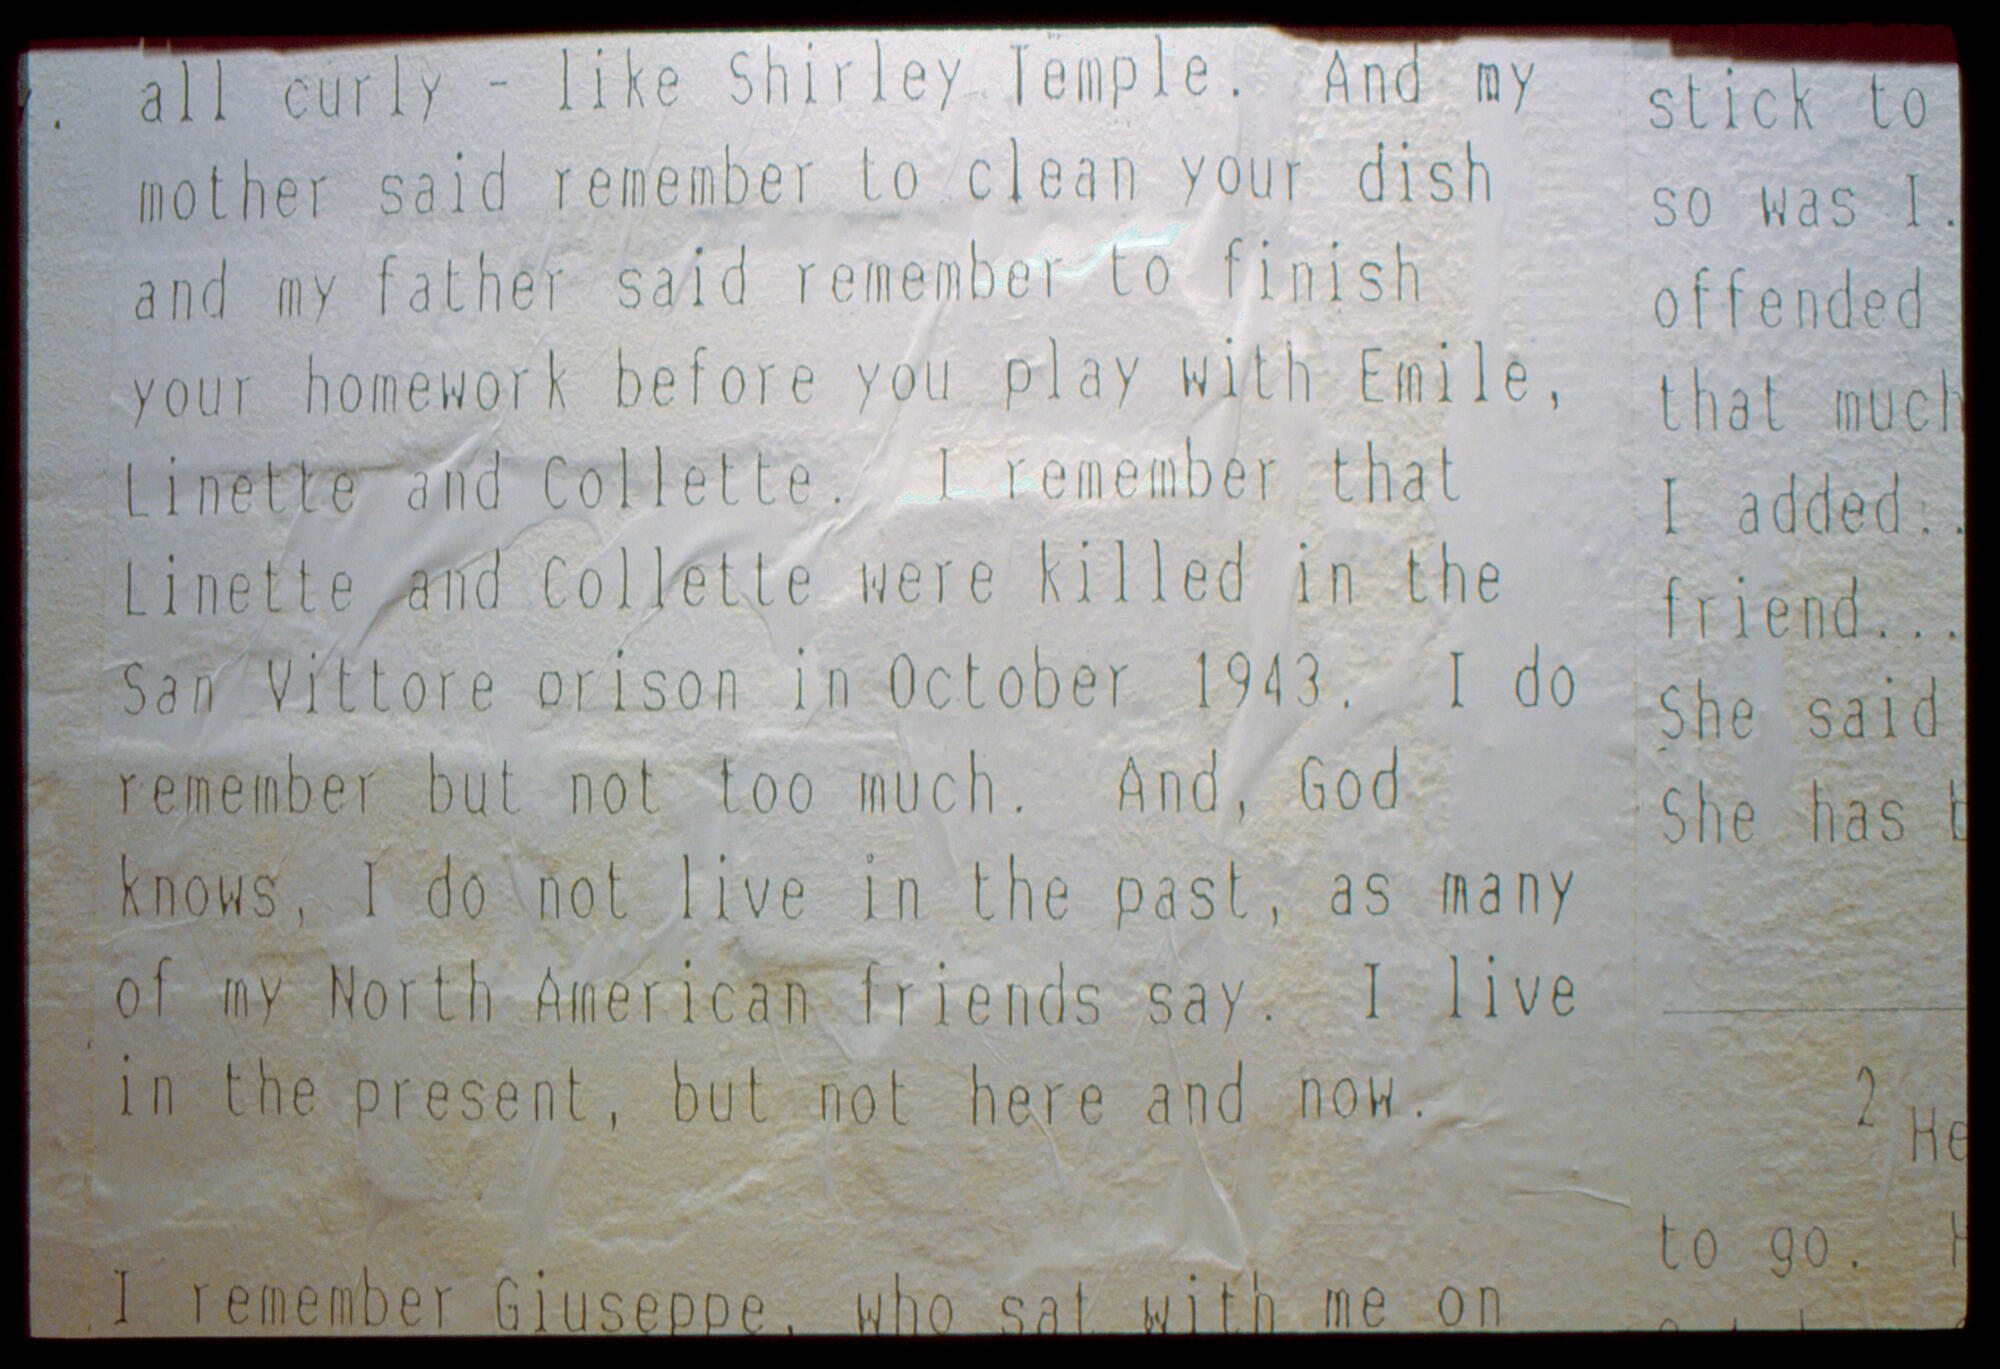 all curly - like Shirley Temple. And my
mother said remember to clean your dish
and my father said remember to finish
your homework before you play with Emile,
Linette and Collette. I remember that
Linette and Collette were killed in the
San Vittore prison in October 1943. I do
remember but not too much. And, God
knows, I do not live in the past, as many
of my North American friends say. I live
in the present, but not here and now.
I remember Giuseppe, who sat with me on
stick to
so was I.
offended
that much
I added..
friend...
She said
She has
2
He
to go.